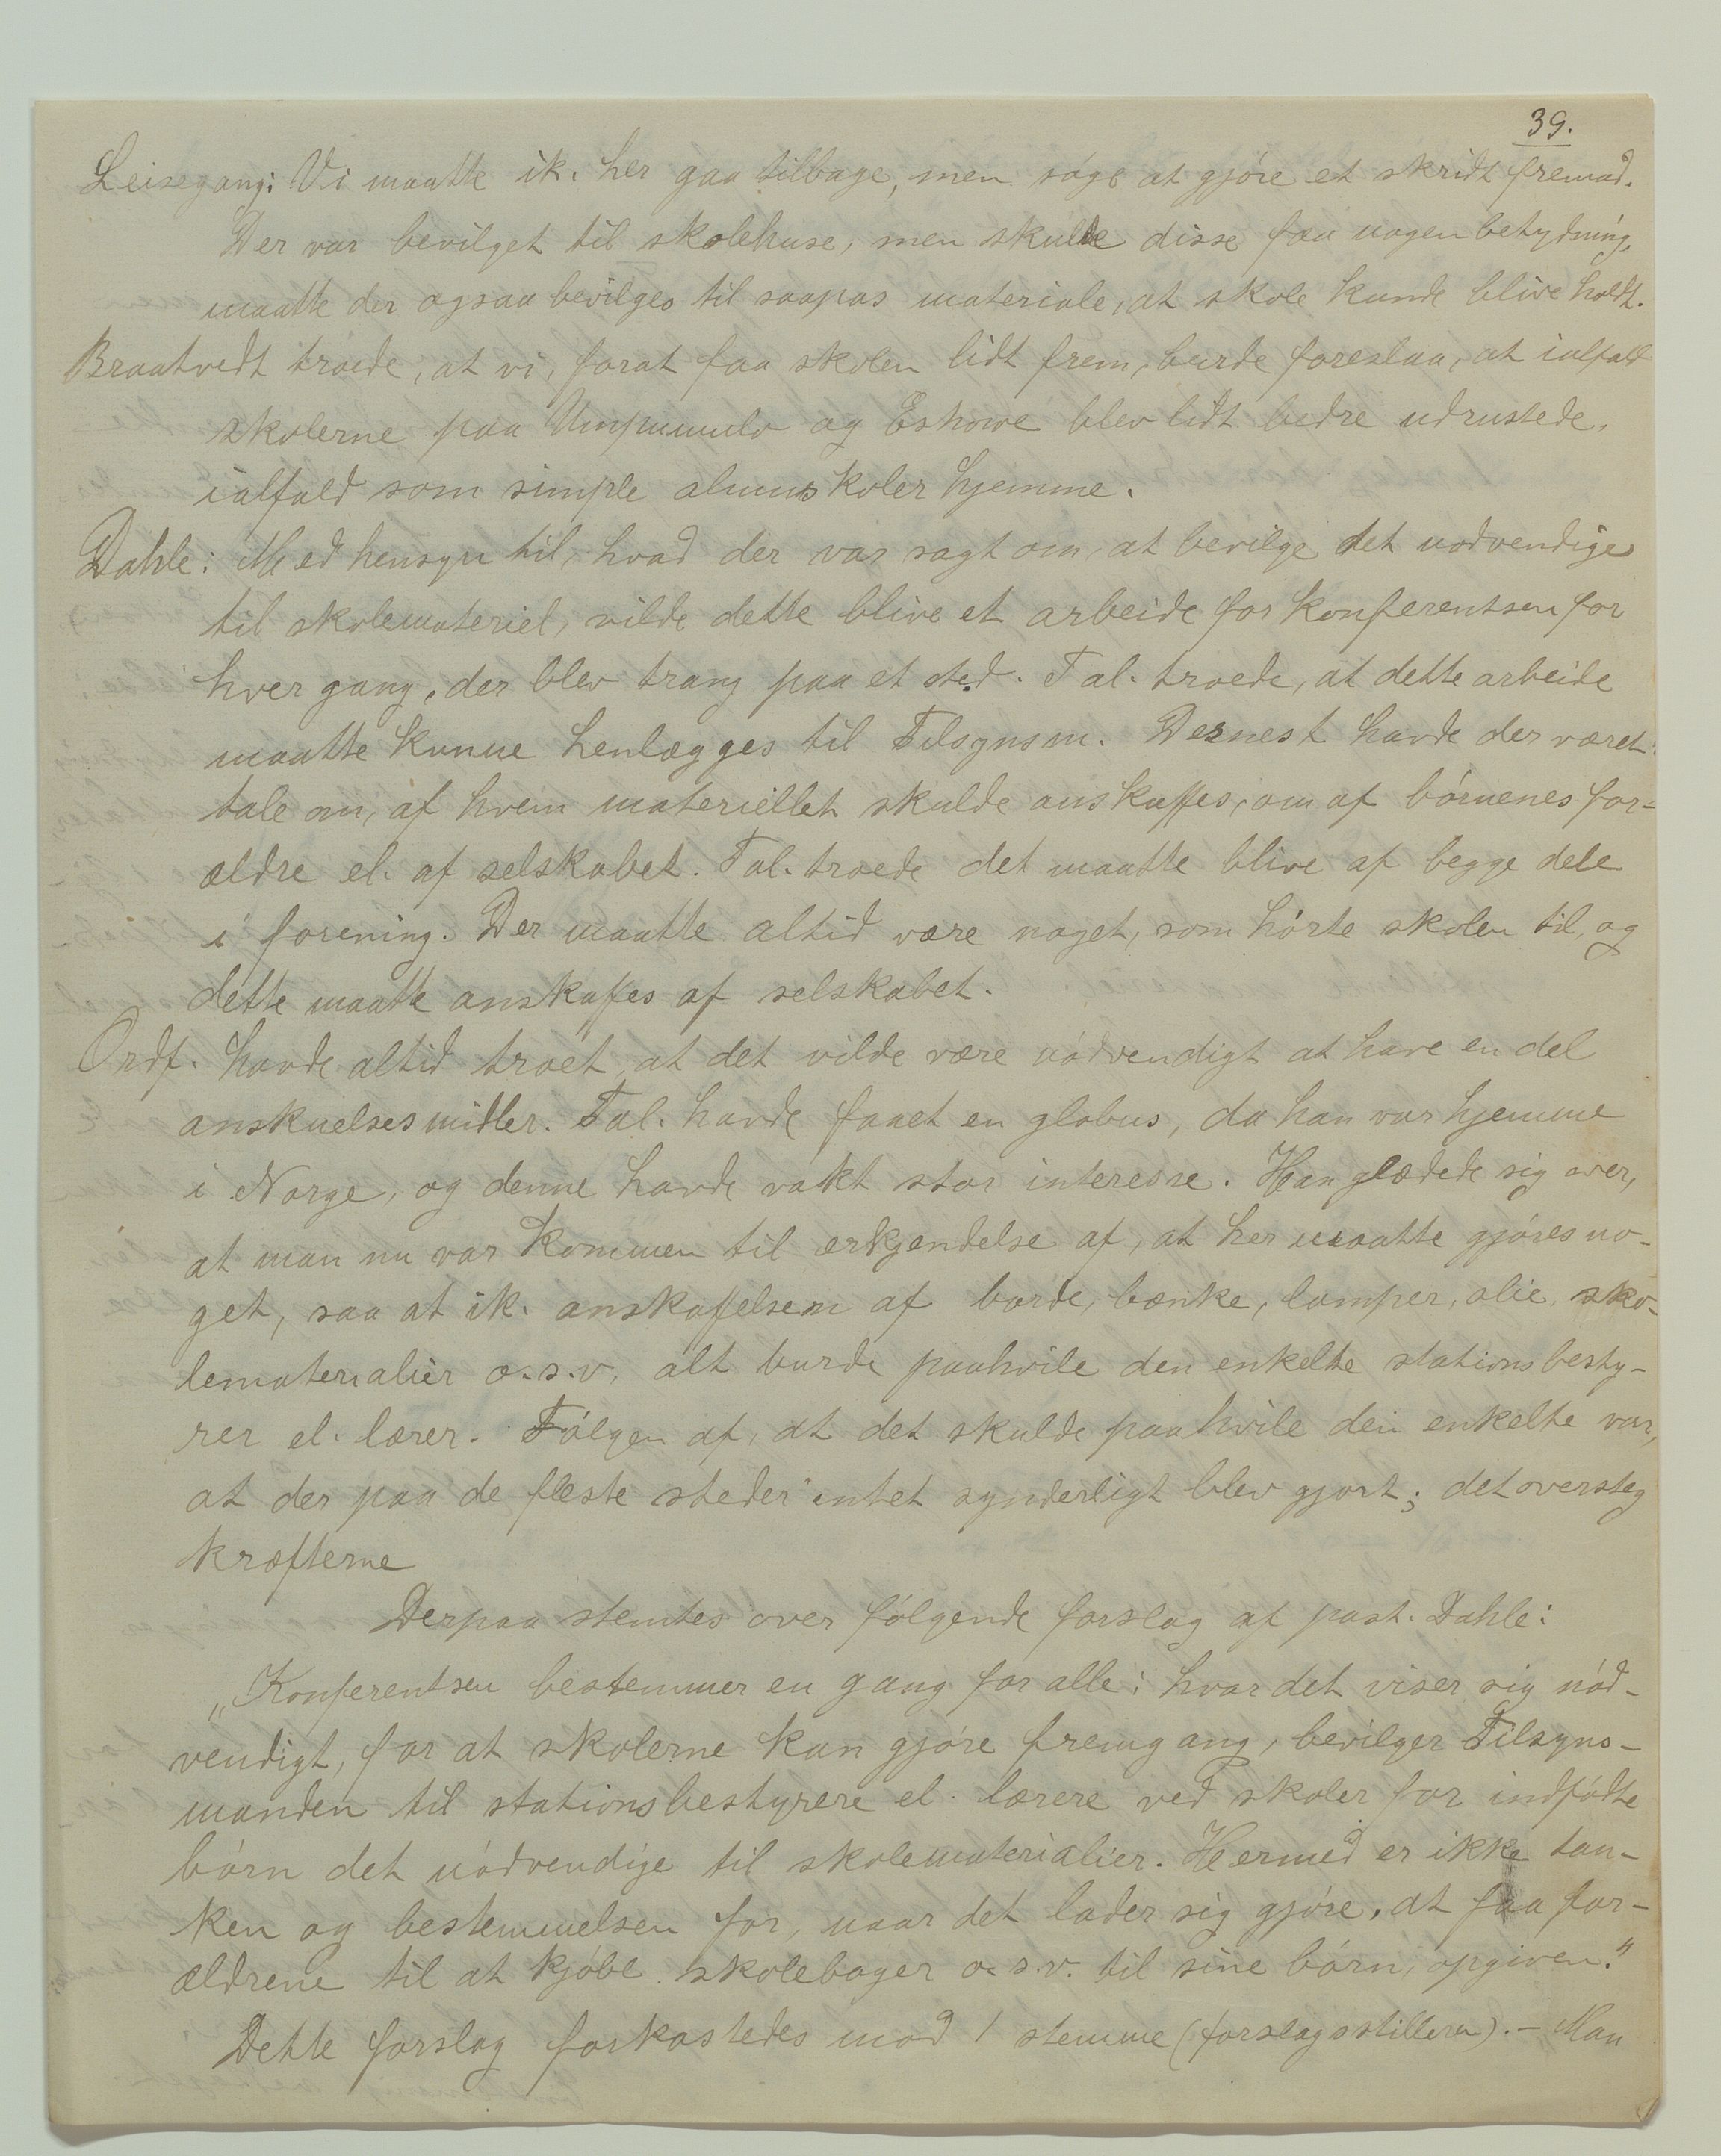 39.
Leisegang: Vi maatte ik. her gaa tilbage, men søge at gjøre et skridt fremad.
Der var bevilget til skolehuse, men skulde disse faa nogen betydning,
maatte der ogsaa bevilges til saapas materiale, at skole kunde blive holdt.
Braatvedt troede, at vi, forat faa skolen lidt frem, burde foreslaa, at ialfald
skolerne paa Umpumulo og Eshowe blev lidt bedre udrustede,
ialfald som simple almuskoler hjemme.
Dahle: Med hensyn til, hvad der var sagt om, at bevilge det nødvendige
til skolemateriel, vilde dette blive et arbeide for Konferentsen for
hver gang, der blev trang paa et sted. Tal. troede, at dette arbeide
maatte kunne henlægges til Tilsynsm. Dernest havde der været
tale om, af hvem materiellet skulde anskaffes, om af børnenes for-
ældre el. af selskabet. Tal. troede det maatte blive af begge dele
i forening. Der maatte altid være noget, som hørte skolen til, og
dette maatte anskaffes af selskabet.
Ordf. havde altid troet, at det vilde være nødvendigt at have en del
anskuelsesmidler. Tal. havde faaet en globus, da han var hjemme
i Norge, og denne havde vakt stor interesse. Han glædede sig over,
at man nu var kommen til erkjendelse af, at her maatte gjøres no-
get, saa at ik. anskaffelsen af borde, bænke, lamper, olie, sko-
lematerialier o.s.v. alt burde paahvile den enkelte stationsbesty-
rer el. lærer. Følgen af, at det skulde paahvile den enkelte var,
at der paa de fleste steder intet synderligt blev gjort; det oversteg
kræfterne
Derpaa stemtes over følgende forslag af past. Dahle:
„Konferentsen bestemmer en gang for alle: hvor det viser sig nød-
vendigt, for at skolerne kan gjøre fremgang, bevilger Tilsyns-
manden til stationsbestyrere el. lærere ved skoler for indfødte
børn det nødvendige til skolematerialier. Hermed er ikke tan-
ken og bestemmelsen for, naar det lader sig gjøre, at faa for-
ældrene til at kjøbe skolebøger o.s.v. til sine børn, opgiven."
Dette forslag forkastedes mod 1 stemme (forslagsstilleren). – Man